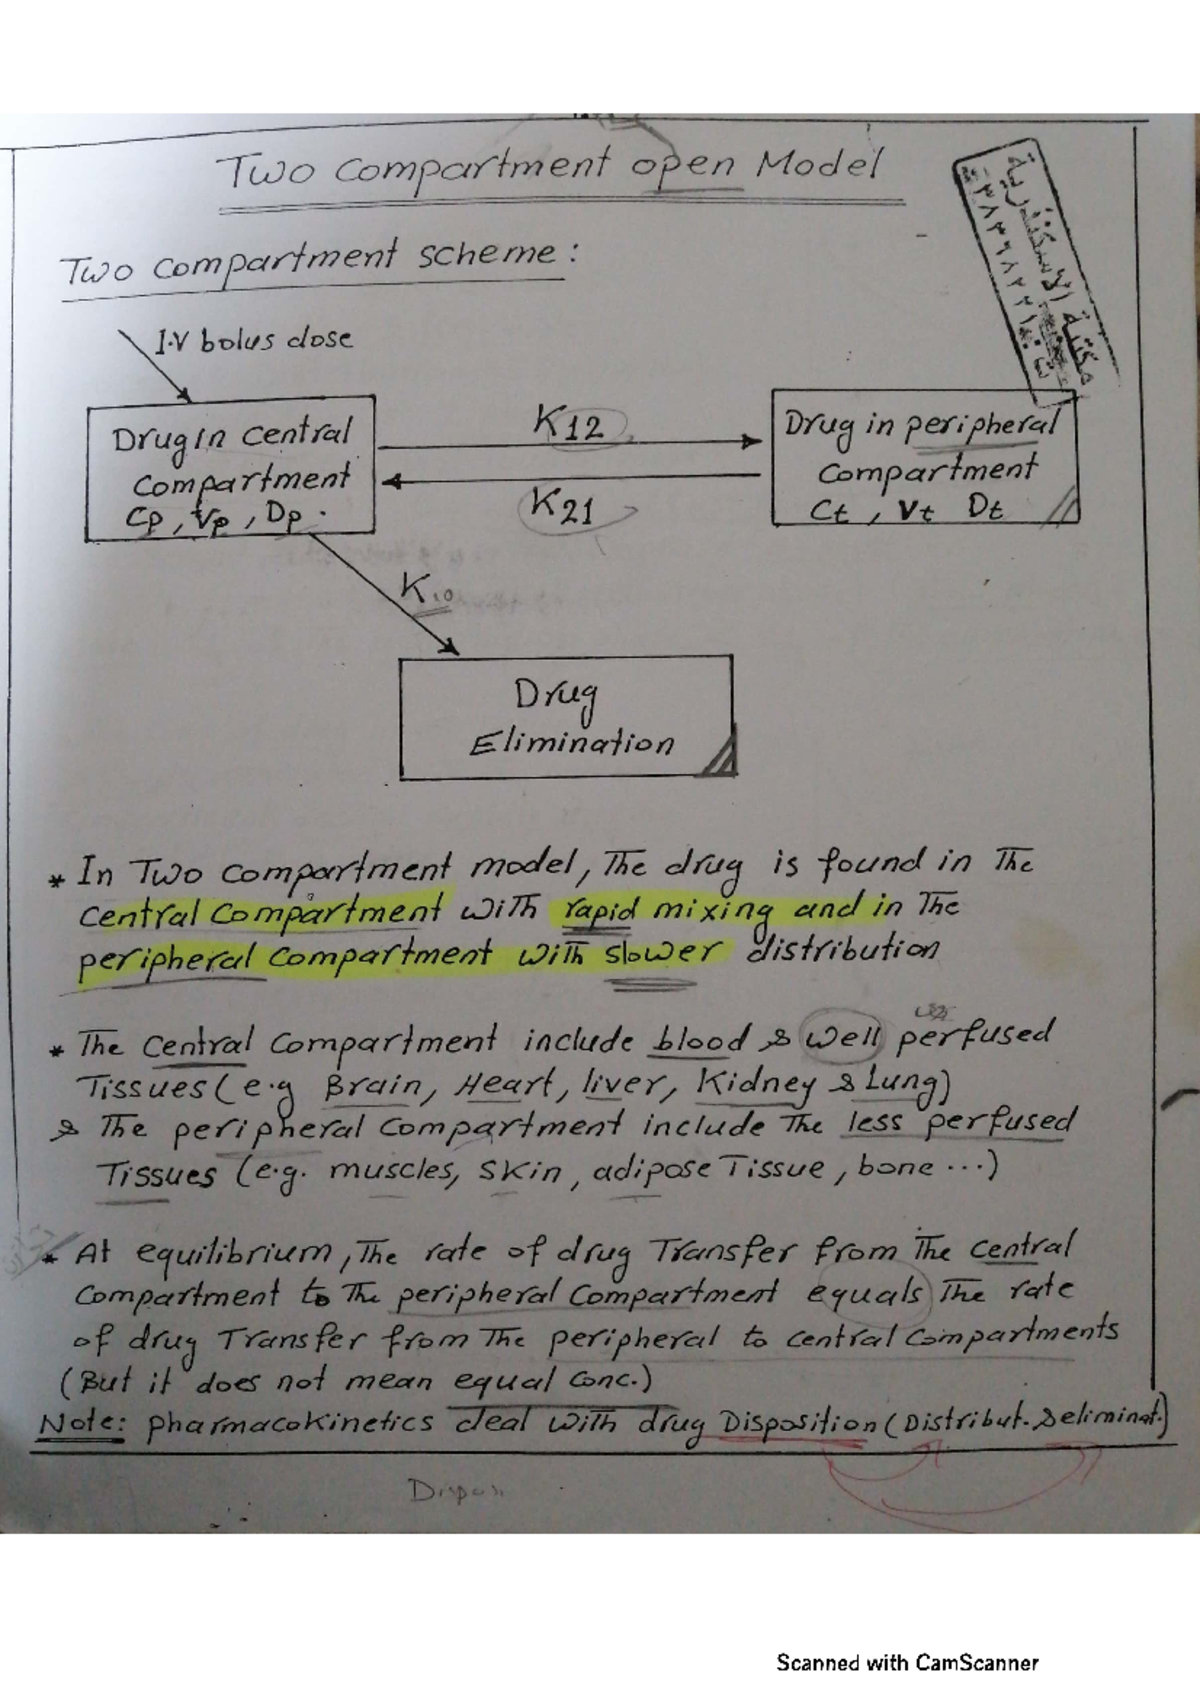 Two Compartment open Model
Two compartment scheme:
I.V bolus dose
Drug in central
compartment
Cp, Vp, Dp.
K12
K21
Drug in peripheral
compartment
Ct, Vt Dt
K10
Drug
Elimination
* In Two compartment model, The drug is found in The
central compartment with rapid mixing and in The
peripheral compartment with slower distribution
* The central compartment include blood & well perfused
Tissues (e.g Brain, Heart, liver, Kidney & Lung)
& The peripheral compartment include The less perfused
Tissues (e.g. muscles, skin, adipose Tissue, bone ...)
* At equilibrium, The rate of drug Transfer from The central
compartment to The peripheral compartment equals The rate
of drug Transfer from The peripheral to central compartments
(But it does not mean equal conc.)
Note: pharmacokinetics deal with drug Disposition (Distribut. & eliminat.)
مكتبة الاسكندرية
Scanned with CamScanner